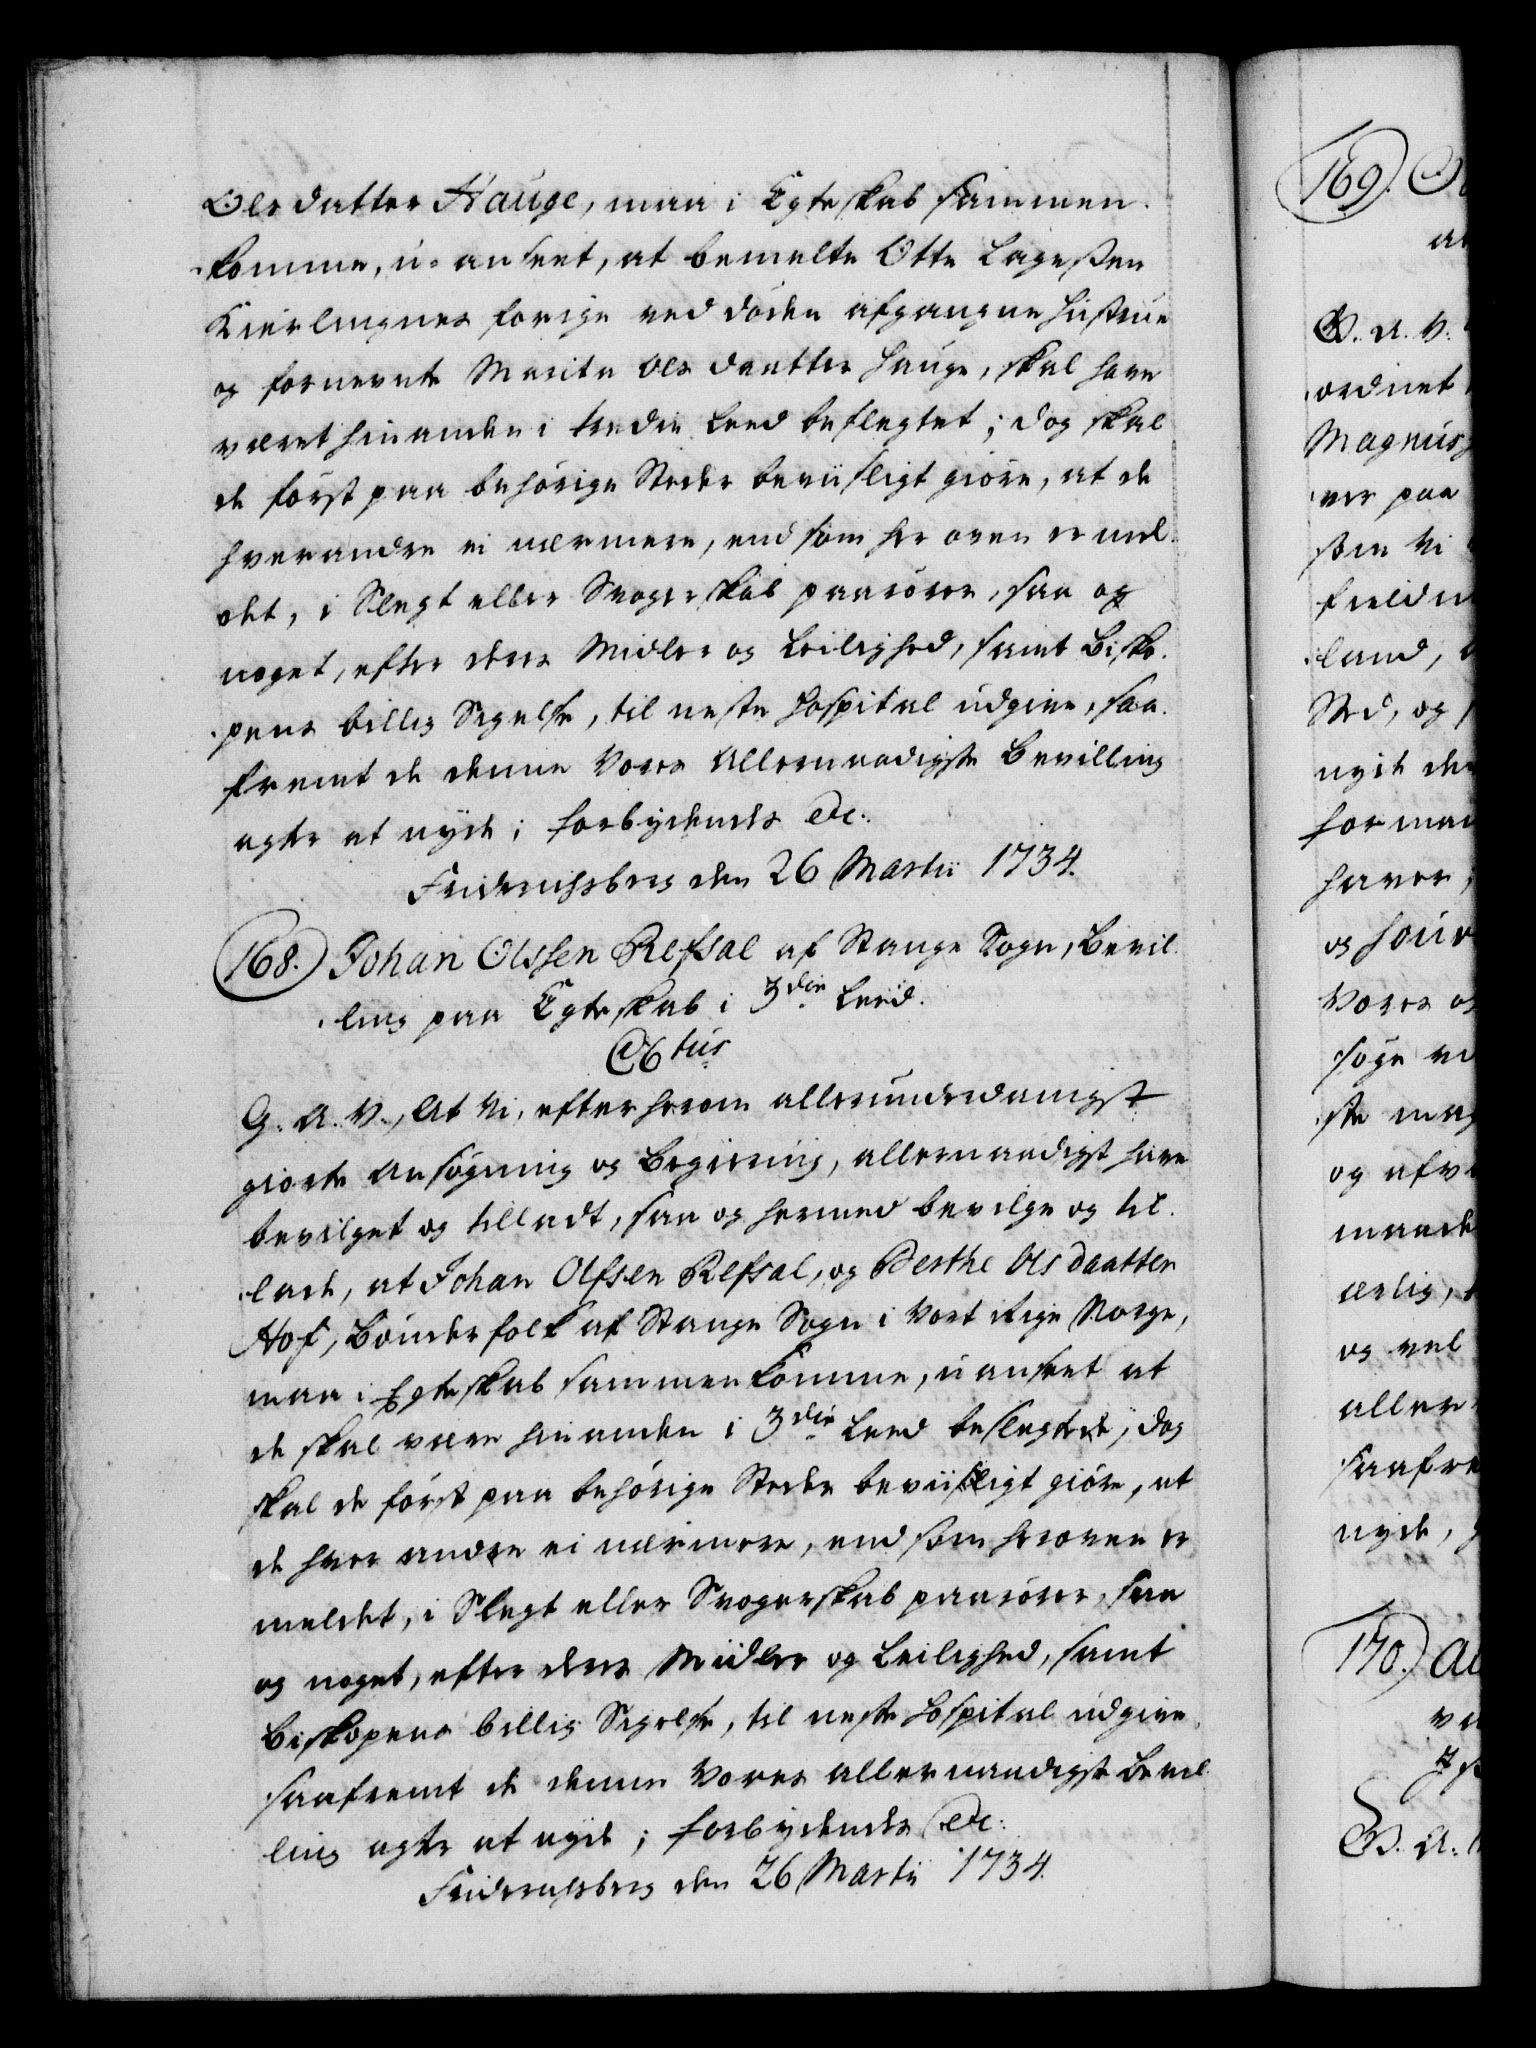 Olsdatter Hauge, maa i Egteskab sammen-
komme, u-anseet, at bemelte Otte Lagessen
Kierlingnes forige ved döden afgangne Hustrue
og fornevnte Marite Olsdaatter Hauge, skal have
været hinanden i tredie Leed beslegtet; dog skal
de först paa behörige Steder beviisligt giöre, at de
hverandre ei nærmere, end som her oven er mel-
det, i Slegt eller Svogerskab paarörer, saa og
noget, efter deres Midler og Leilighed, samt Bisko-
pens billig Sigelse, til neste Hospital udgive, saa-
fremt de denne Vores Allernaadigste Bevilling
agter at nyde; forbydendes etc.
Friderichsberg den 26 Martii 1734.
168. Johan Olssen Refsal af Stange Sogn, Bevil-
ling paa Egteskab i 3die Leed.
C6tus
G. A. V., At Vi, efter herom allerunderdanigst
giorte Ansögning og Begiering, allernaadigst have
bevilget og tilladt, saa og hermed bevilge og til-
lade, at Johan Olssen Refsal, og Berthe Olsdaatter
Hof, Bönderfolk af Stange Sogn i Vort Rige Norge,
maa i Egteskab sammenkomme, uanseet at
de skal være hinanden i 3die Leed beslegtede; dog
skal de först paa behörige Steder beviisligt giöre, at
de hver andre ei nærmere, end som heroven er
meldet, i Slegt eller Svogerskab paarörer, saa
og noget, efter deres Midler og Leilighed, samt
Biskopens billig Sigelse, til neste Hospital udgive,
saafremt de denne Vores allernaadigste Bevil-
ling agter at nyde; forbydendes etc:
Friderichsberg den 26 Martii 1734.
169.
G. A. V.
ordnet
Magnus
ver paa
som Vi
land,
Sted, og
nyde
haver
og
Vores
söge
og
aller
saafre
nyde,
170.
G. A.